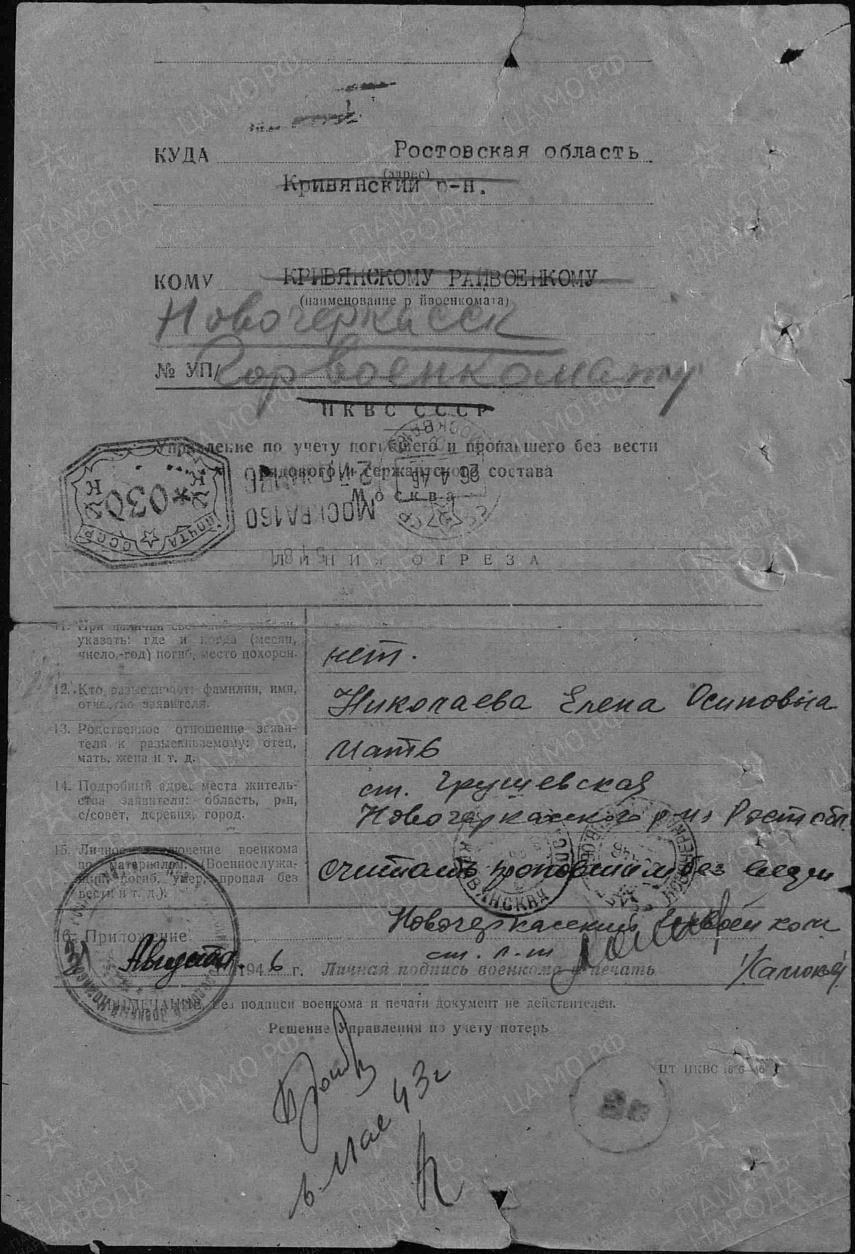 КУДА Ростовская область
(адрес)
Кривянский р-н.
КОМУ КРИВЯНСКОМУ РАЙВОЕНКОМУ
(наименование р йвоенкомата)
Новочеркасск
№ УП/ Горвоенкомату
НКВС СССР
Управление по учету погибшего и пропавшего без вести
рядового и сержантского состава
Москва
ПОЧТА СССР
*030
МОСКВА 160
ЛИНИЯ ОТРЕЗА
указать: где и когда (месяц,
число, год) погиб, место похорон.
нет.
12. Кто разыскивает: фамилия, имя,
отчество заявителя.
Николаева Елена Осиповна
13. Родственное отношение заяви-
теля к разыскиваемому: отец,
мать, жена и т. д.
мать
14. Подробный адрес места житель-
ства заявителя: область, р-н,
с/совет, деревня, город.
ст. Грушевская
Новочеркасского р-на Рост обл
15. Личное заключение военкома
по материалам: (Военнослужа-
щий погиб, умер, пропал без
вести и т. д.).
считать пропавшим без вести
16. Приложение
Новочеркасский
Августа 1946 г. Личная подпись военкома и печать
ст. л-т
ПРИМЕЧАНИЕ. Без подписи военкома и печати документ не действителен.
Решение Управления по учету потерь
ЦТ НКВС
в мае 43 г